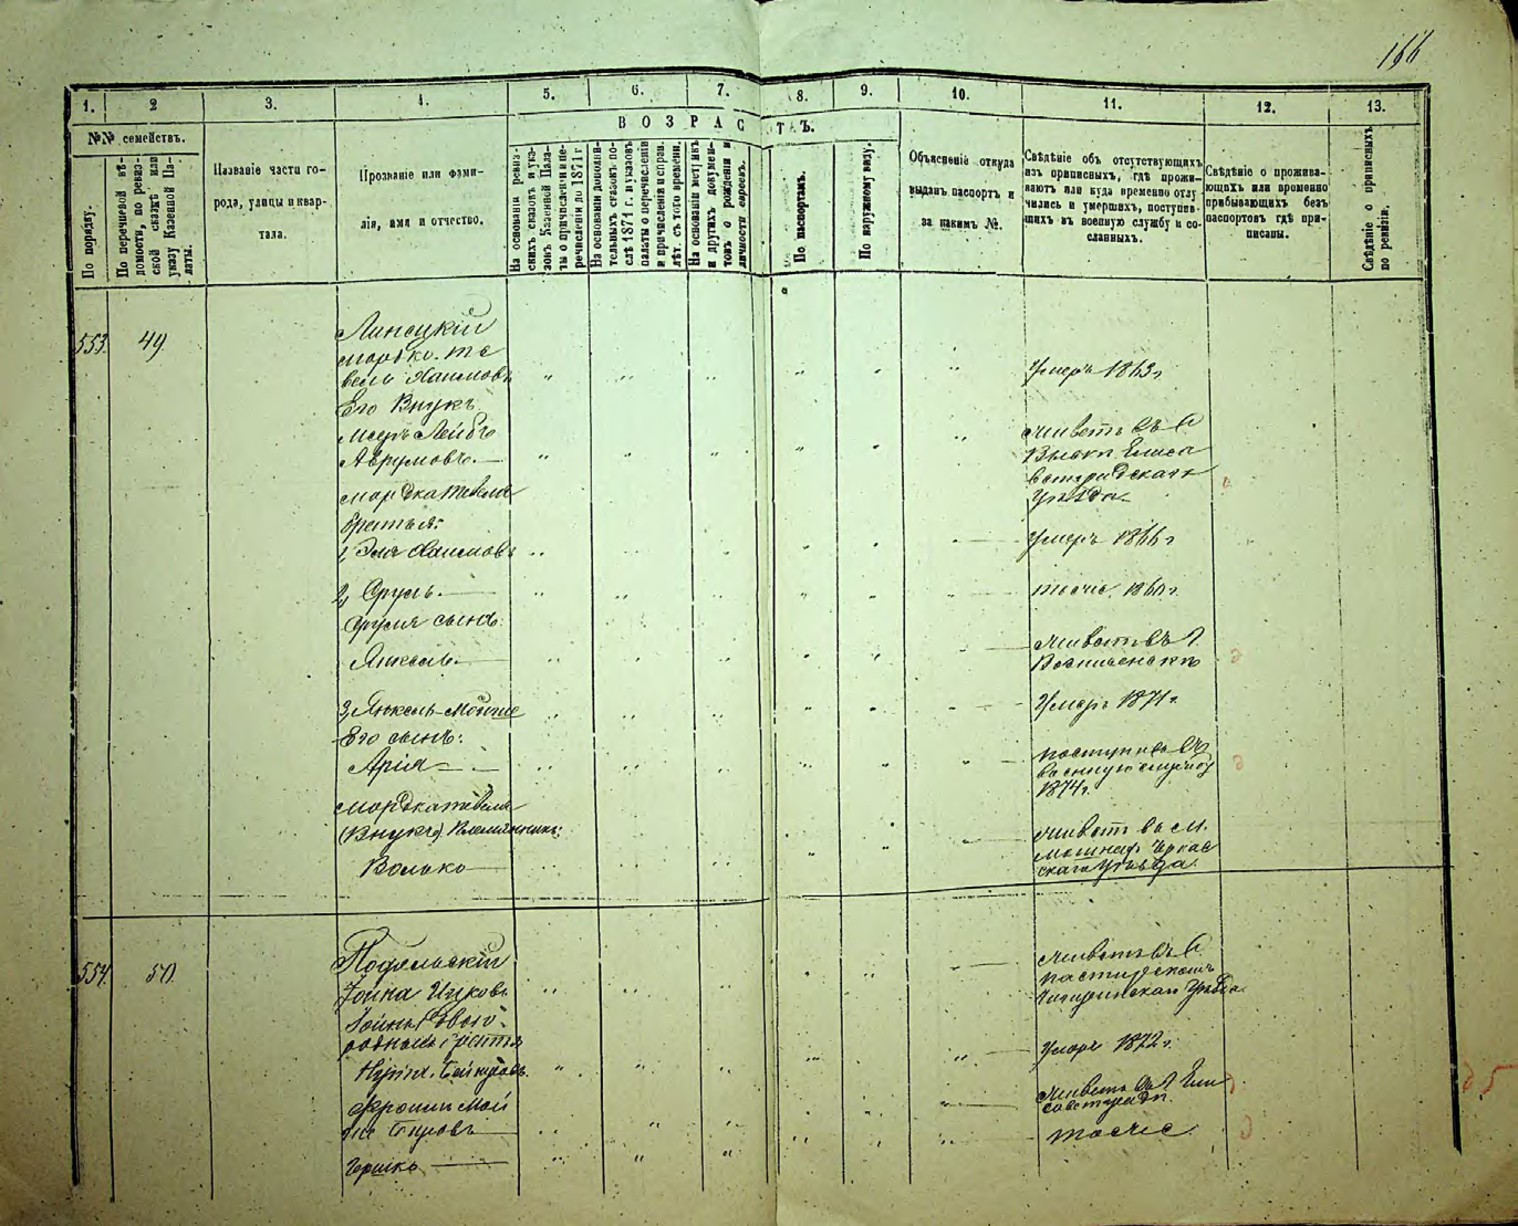 166
1. 2 3. 4. 5. 6. 7. 8. 9. 10. 11. 12. 13.
№№ семействъ.
По порядку.
По перечневой вѣ-
домости, по ревиз-
ской сказкѣ или
указу Казенной Па-
латы.
Названіе части го-
рода, улицы и квар-
тала.
Прозваніе или фами-
лія, имя и отчество.
ВОЗРАСТЪ.
На основаніи ревиз-
скихъ сказокъ и ука-
зовъ Казенной Пала-
ты о причисленіи и пе-
речисленіи до 1871 г.
На основаніи дополни-
тельныхъ сказокъ по-
слѣ 1871 г. и указовъ
палаты о перечисленіи
и причисленіи и справ.
лѣт. съ того времени.
На основаніи метрикъ
и другихъ докумен-
товъ о рожденіи и
личности евреевъ.
По паспортамъ.
По наружному виду.
Объясненіе откуда
выданъ паспортъ и
за какимъ №.
Свѣдѣніе объ отсутствующихъ
изъ приписныхъ, гдѣ прожи-
ваютъ или куда временно отлу-
чились и умершихъ, поступив-
шихъ въ военную службу и со-
сланныхъ.
Свѣдѣніе о прожива-
ющихъ или временно
прибывающихъ безъ
паспортовъ гдѣ при-
писаны.
Свѣдѣніе о приписныхъ
по ревизіи.
553. 49.
Липецкій
Мордко-Те
вель Хаимовъ
Умеръ 1863 г.
Его Внукъ
Мееръ Лейбъ
Аврумовъ
Живетъ въ С.
Елиса
ветградскаго
Уѣзда
Мордка Тевеля
братья:
1, Эля Хаимовъ
Умеръ 1866 г
2, Сруль
тоже 1860 г.
Сруля сынъ:
Янкель
Живетъ въ г.
Вознесенскѣ
3, Янкель-Мойше
Умеръ 1871 г.
Его сынъ:
Арія
поступилъ въ
военную службу
1874 г.
Мордка Тевеля
(Внукъ) Племянникъ:
Волько
Живетъ въ м.
Мошнахъ Черкас
скаго Уѣзда.
554. 50.
Подольскій
Іойна Ицковъ
Живетъ въ С.
Пастырскомъ
Чигиринскаго Уѣзда
Іойны Двою-
родные братья
Умеръ 1872 г.
Фроимъ Мой
ше
Живетъ въ г. Ели
саветградѣ.
тоже
Гершко